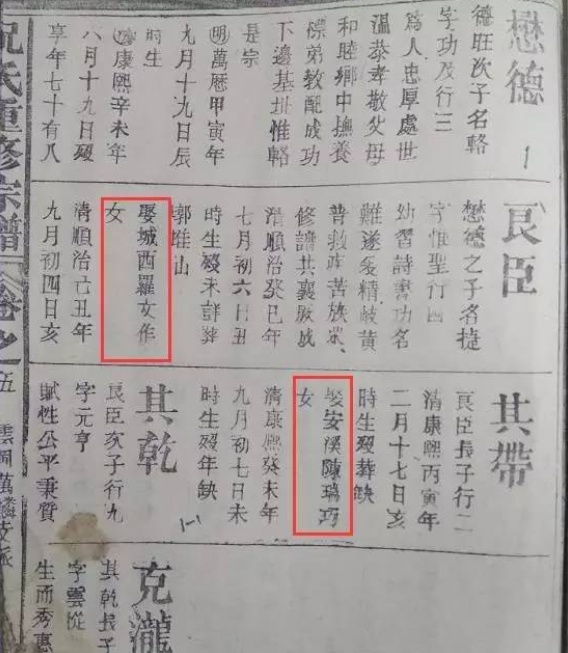 懋德
德旺次子名輅
字功及行三
為人忠厚處世
溫恭孝敬父母
和睦鄉中撫養
標弟教配成功
下邊基址惟輅
是宗
明萬曆甲寅年
九月十九日辰
時生
清康熙辛未年
八月十九日歿
享年七十有八
良臣
懋德之子名捷
字惟聖行四
幼習詩書功名
難遂爰精岐黄
普救疾苦族眾
修譜共襄厥成
清順治癸巳年
七月初六日丑
時生歿未詳葬
郭山
娶城西羅女作
女
清順治己丑年
九月初四日亥
其帶
良臣長子行二
清康熙丙寅年
二月十七日亥
時生歿葬缺
娶安溪陳瑞巧
女
清康熙癸未年
九月初七日未
時生歿年缺
其乾
良臣次子行九
字元亨
賦性公平秉質
克瀧
其乾長子
字雲從
生而秀惠
氏重修宗譜 卷之五 雲洞萬麟支派